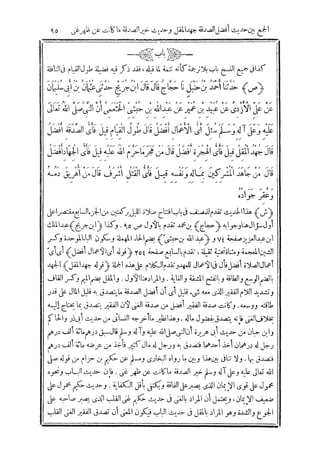 الجمع بين حديث أفضل الصدقة جهد المقل وحديث خير الصدقة ما كان عن ظهر غنى ٩٥
باب
كذا فى جميع النسخ باب بلا ترجمة كأنه تتمة لما قبله، فقد ذكر فيه فضيلة طول القيام فى النافلة
(ص) حدثنا أحمد بن حنبل نا حجاج قال قال ابن جريج حدثنى عثمان بن أبى سليمان
عن على الأزدى عن عبيد بن عمير عن عبد الله بن حبشى الخثعمى أن النبى صلى الله تعالى
عليه وعلى آله وسلم سئل أى الأعمال أفضل قال طول القيام قيل فأى الصدقة أفضل
قال جهد المقل قيل فأى الهجرة أفضل قال من هجر ما حرم الله عليه قيل فأى الجهاد أفضل
قال من جاهد المشركين بماله ونفسه قيل فأى القتل أشرف قال من أهريق دمه
وعقر جواده
(ش) هذا الحديث تقدم للمصنف فى باب افتتاح صلاة الليل بركعتين من الجزء السابع مقتصرا على
أول سؤال منه وجوابه (حجاج) بن محمد تقدم بالأول ص ٩٥. وكذا (ابن جريج) عبد الملك
ابن عبد العزيز صفحة ٧٤ و (عبد الله بن حبشى) بضم الحاء المهملة وسكون الباء الموحدة وكسر
الشين المعجمة ومثناة تحتية ثقيلة. تقدم بالسابع صفحة ٢٥٤ (قوله أى الأعمال أفضل) أى أى
أعمال الصلاة أفضل فأل فى الأعمال للعهد وتقدم الكلام على هذه الجملة (قوله جهد المقل) الجهد
بالضم الوسع والطاقة وبالفتح المشقة والغاية. والمراد هنا الأول. والمقل بضم الميم وكسر القاف
وتشديد اللام الفقير الذى معه شىء قليل أى أن أفضل الصدقة ما يتصدق به قليل المال على قدر
طاقته ووسعه. وكانت صدقة الفقير أفضل من صدقة الغنى لأن الفقير يتصدق بما يحتاج إليه
بخلاف الغنى فإنه يتصدق بفضول ماله. وهذا نظير ما أخرجه النسائى من حديث أبى ذر والحاكم
وابن حبان من حديث أبى هريرة أن النبى صلى الله عليه وآله وسلم قال سبق درهم مائة ألف درهم
رجل له درهمان أخذ أحدهما فتصدق به ورجل له مال كثير فأخذ من عرضه مائة ألف درهم
فتصدق بها. ولا تنافى بين هذا وبين ما رواه البخارى ومسلم عن حكيم بن حزام من قوله صلى
الله تعالى عليه وعلى آله وسلم خير الصدقة ما كان عن ظهر غنى. فإن حديث الباب ونحوه
محمول على قوى الإيمان الذى يصبر على الفاقة ويكتفى بأقل الكفاية. وحديث حكيم محمول على
ضعيف الإيمان، ويحتمل أن المراد بالغنى فى حديث حكيم غنى القلب الذى يصبر صاحبه على
الجوع والشدة وهو المراد بالمقل فى حديث الباب فيكون المعنى أن تصدق الفقير الغنى القلب